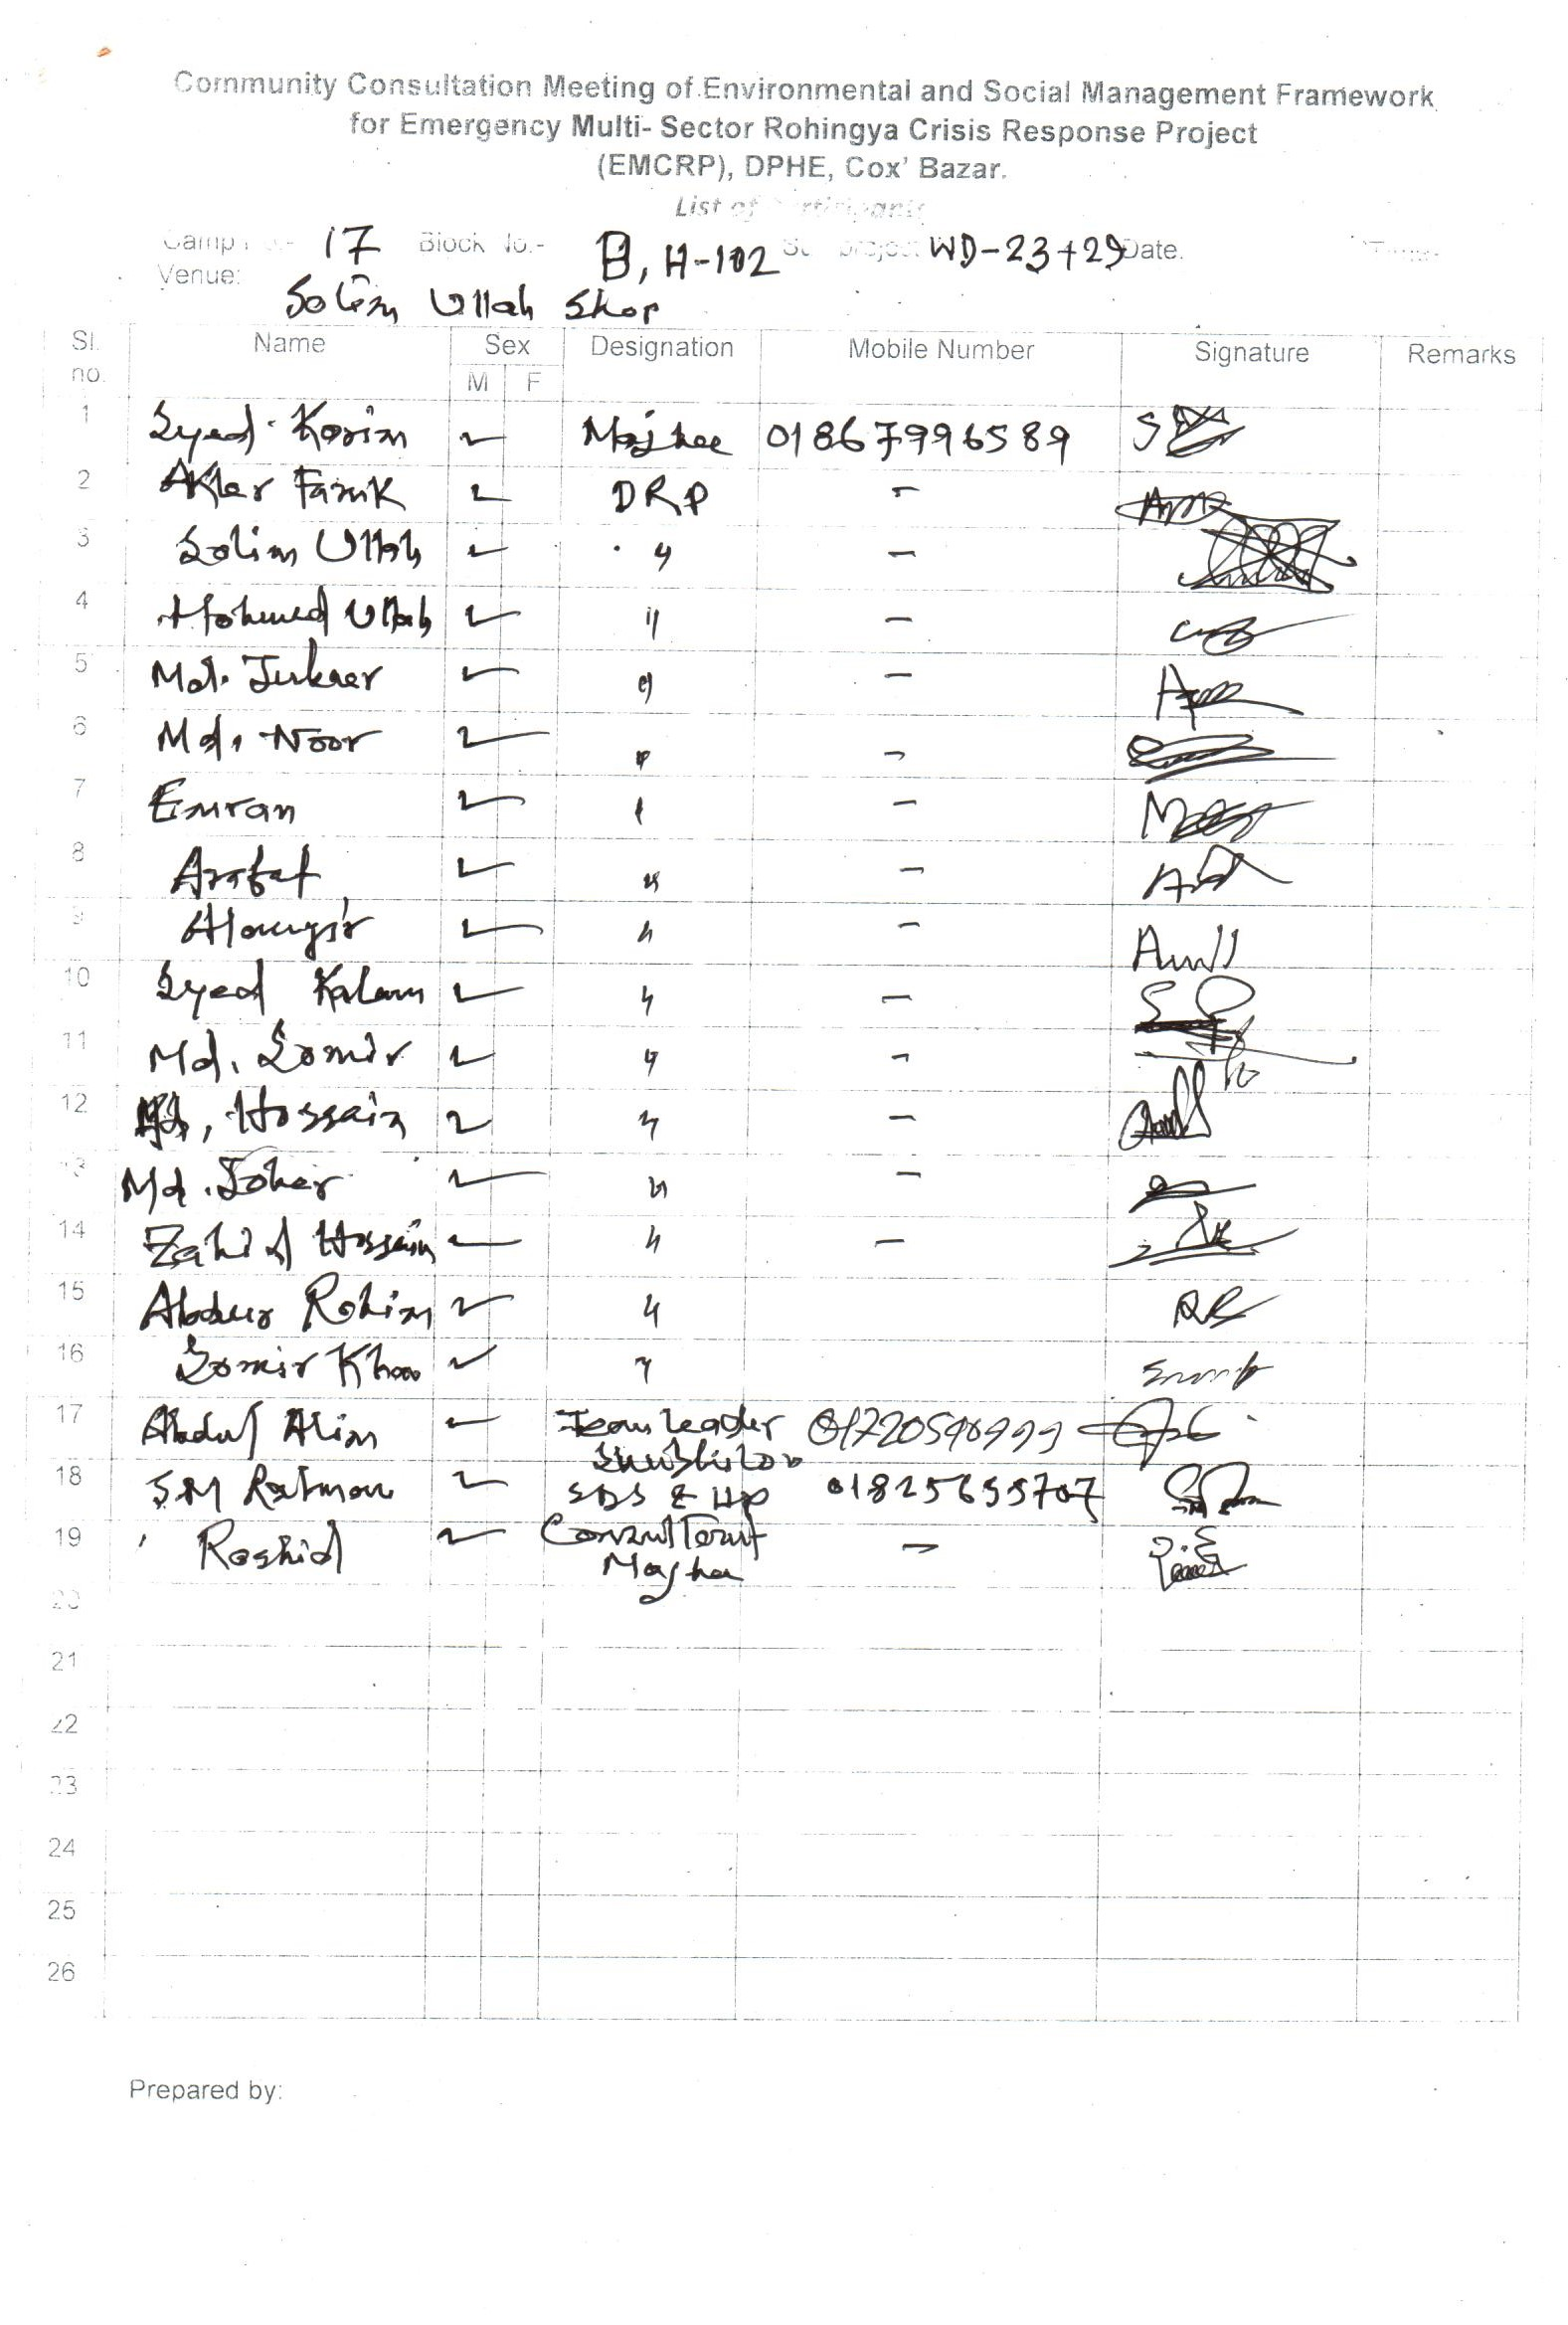 Community Consultation Meeting of Environmental and Social Management Framework
for Emergency Multi- Sector Rohingya Crisis Response Project
(EMCRP), DPHE, Cox' Bazar.
List of Participants
Camp No.- 17 Block No.- B, H-102 Sub project WD-23+29 Date.
Venue: Solim Ullah Shop
Sl. no. Name Sex Designation Mobile Number Signature Remarks
M F
1 Syed Korim Majhee 01867996589
2 Akter Faruk DRP -
3 Solim Ullah " -
4 Ullah " -
5 Md. " -
6 Md. Noor " -
7 Emran " -
8 Arafat " -
9 Alamgir " -
10 Syed Kalam " -
11 Md. Somir " -
12 Md. Hossain " -
13 Md. " -
14 Zahid Hossain " -
15 Abdur Rohim "
16 Somir Khan "
17 Abdul Alim Team Leader
18 S.M Rahman SDS & HP
19 Rashid Consultant -
Majhee
20
21
22
23
24
25
26
Prepared by: